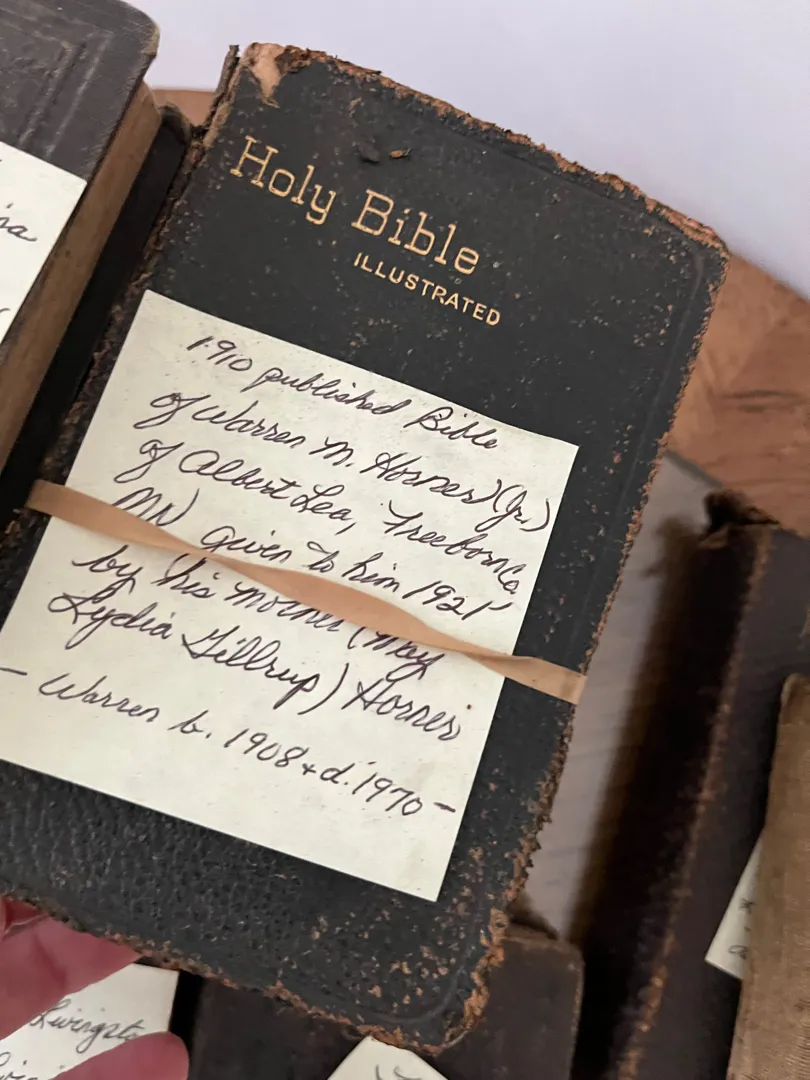 Holy Bible
ILLUSTRATED
1910 published Bible
of Warren M. Horner (Jr.)
of Albert Lea, Freeborn Co.
MN given to him 1921
by his mother (May
Lydia Gillrup) Horner
- Warren b. 1908 & d. 1970 -